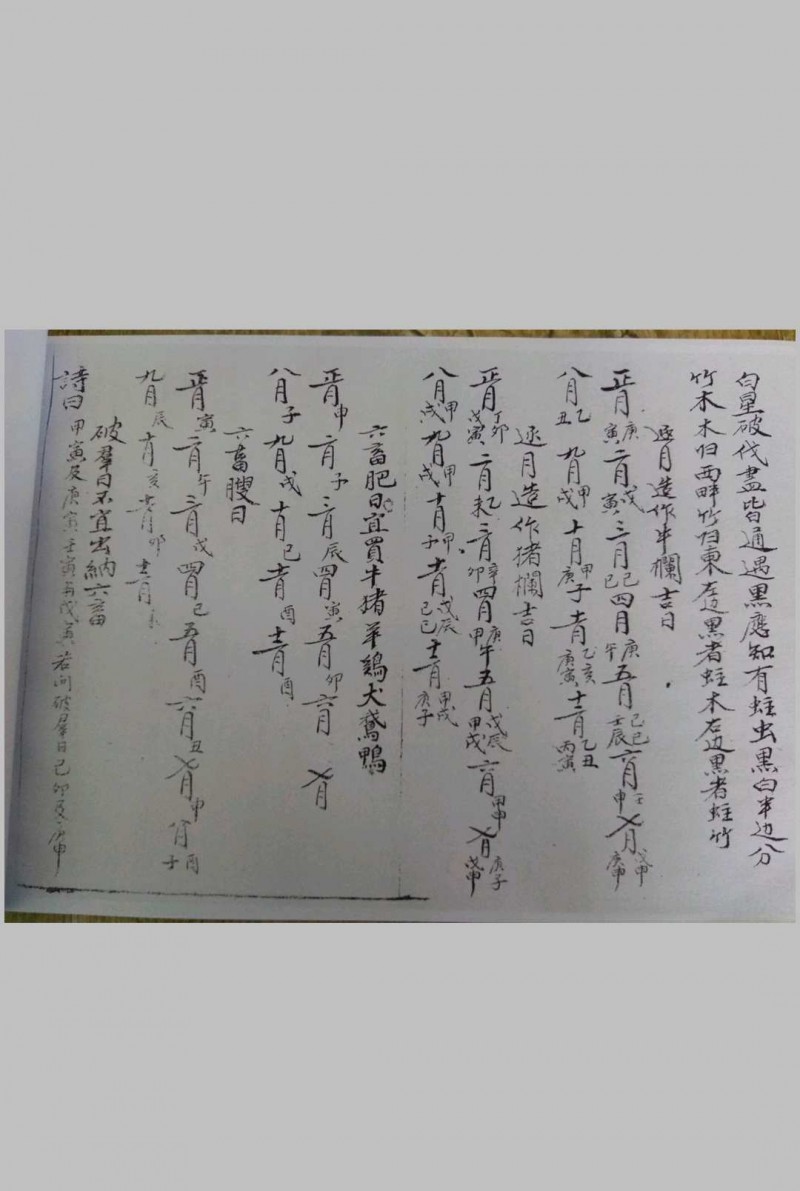 白星破伐盡皆通遇黑應知有蛀虫黑白半边分
竹木木归西畔竹归東左边黑者蛀木右边黑者蛀竹
逐月造作牛欄吉日
正月庚寅二月戊寅三月己巳四月庚午五月己巳壬辰六月壬申七月戊申庚申
八月乙丑九月甲戌十月甲子庚子十一月乙亥庚寅十二月乙丑丙寅
逐月造作猪欄吉日
正月丁卯戊寅二月乙未三月辛卯四月庚午甲午五月戊辰甲戌六月甲申七月庚子戊申
八月甲戌九月甲戌十月甲子十一月戊辰己巳十二月甲戌庚子
六畜肥日宜買牛猪羊鷄犬鵞鴨
正月申二月子三月辰四月寅五月卯六月 七月
八月子九月戌十月巳十一月酉十二月酉
六畜膄日
正月寅二月午三月戌四月巳五月酉六月丑七月申八月酉子
九月辰十月亥十一月卯十二月
破羣日不宜出納六畜
詩曰甲寅及庚寅壬寅與戊寅若问破羣日己卯及庚申